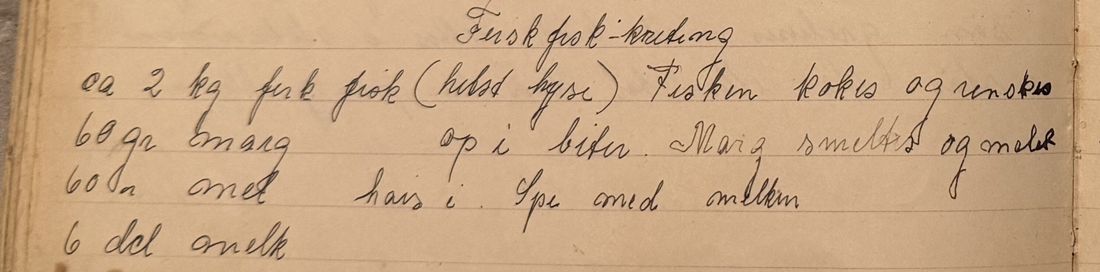 Fersk fisk-kreting
ca 2 kg fersk fisk (helst hyse) Fisken kokes og renskes
60 gr marg op i biter. Marg smeltes og melet
60 " mel haes i. Spe med melken
6 del melk